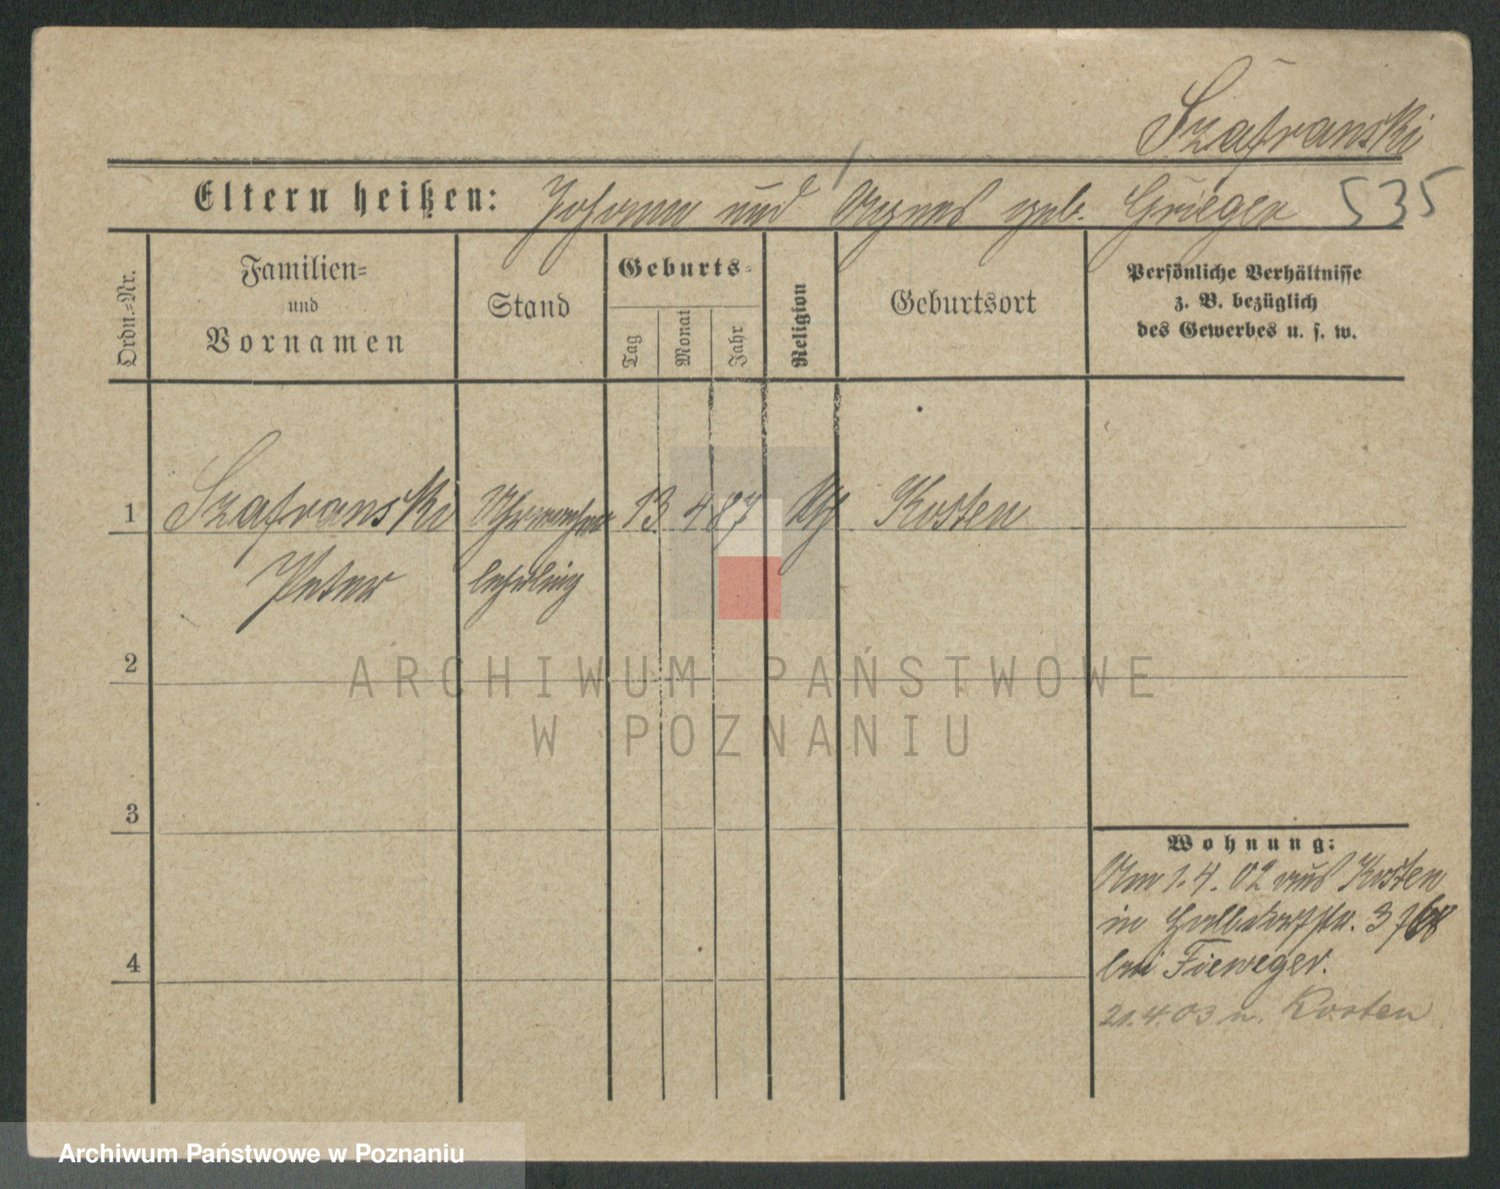 Szafranski
Eltern heißen: Johann und Agnes geb. Grieger 535
Ordn.=Nr.
Familien=
und
Vornamen
Stand
Geburts=
Tag
Monat
Jahr
Religion
Geburtsort
Persönliche Verhältnisse
z. B. bezüglich
des Gewerbes u. s. w.
1 Szafranski Uhrmacher 13 4 87 Kosten
Peter lehrling
2
ARCHIWUM PAŃSTWOWE
W POZNANIU
3
Wohnung:
Am 1.4.02 aus Kosten
in Halbdorfstr. 37
bei Fieweger.
4
21.4.03 n. Kosten
Archiwum Państwowe w Poznaniu